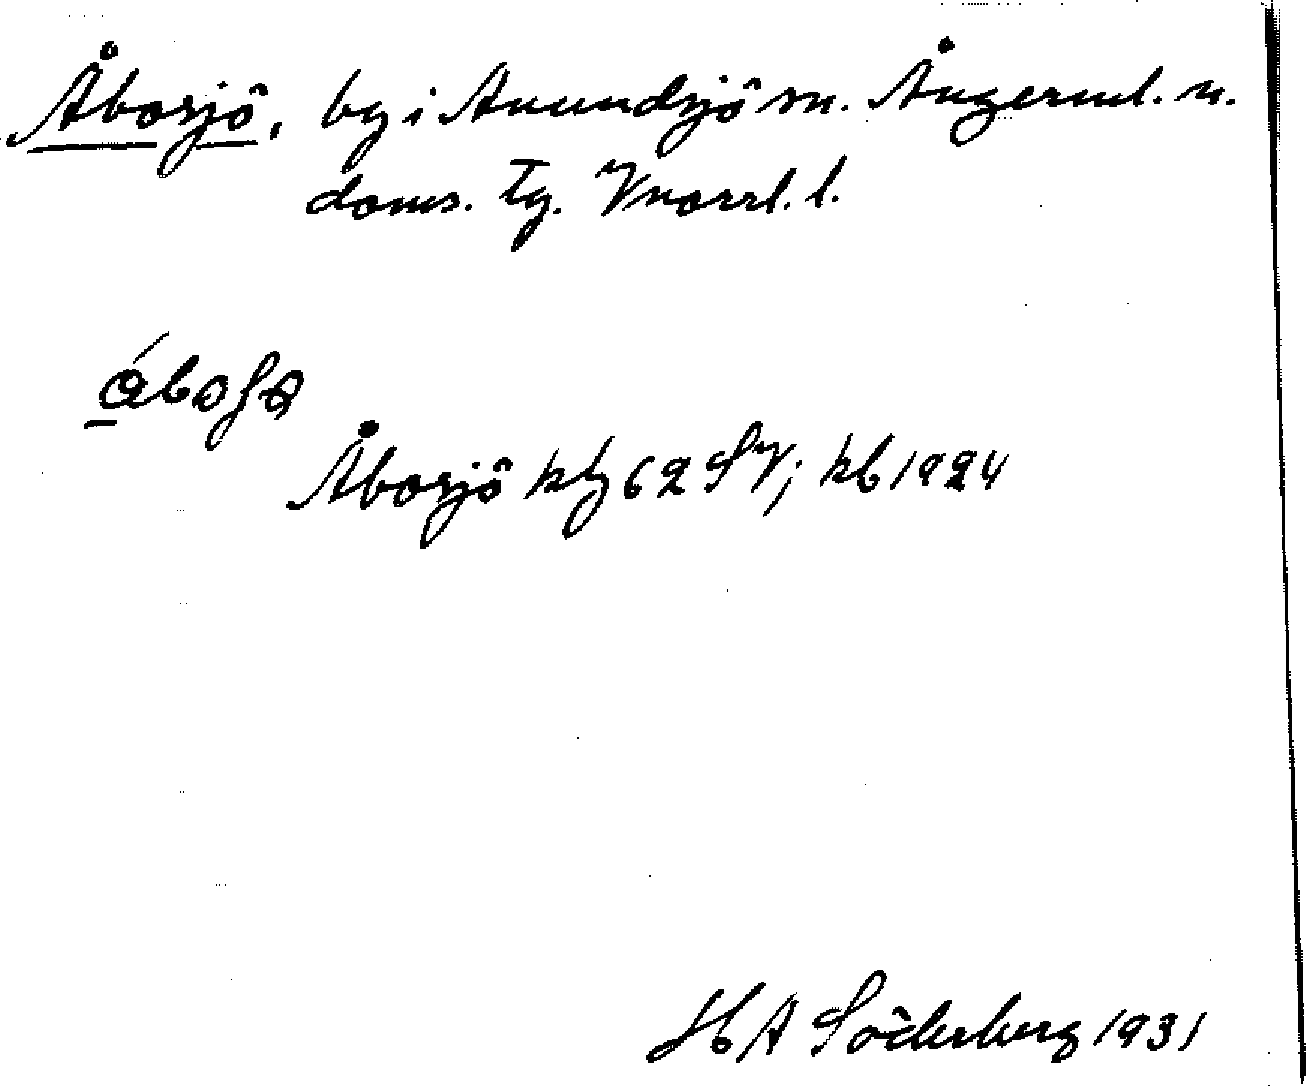 Åbosjö, by i Anundsjö sn. Ångerml. n.
doms. tg. Vnorrl. l.
Åbosjö ktg 62 SV; kb 1924
H A Söderberg 1931